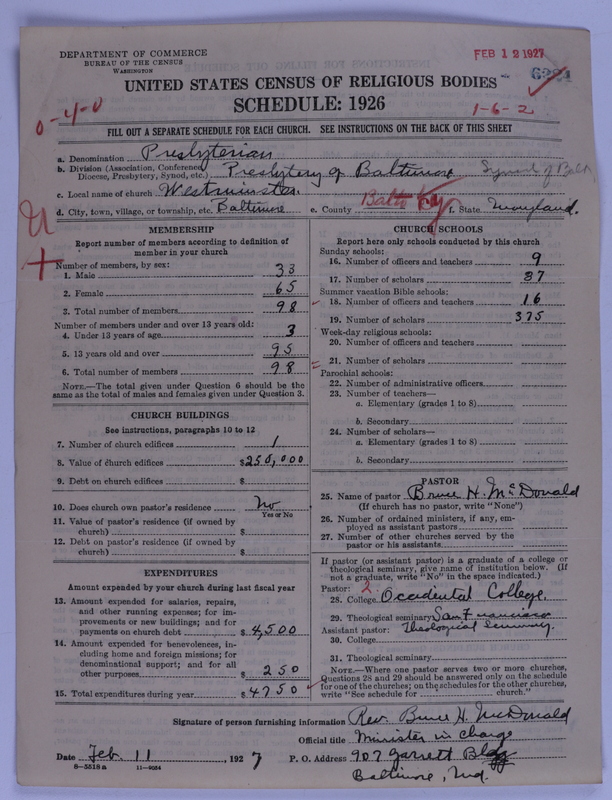 DEPARTMENT OF COMMERCE
BUREAU OF THE CENSUS
WASHINGTON
FEB 12 1927
UNITED STATES CENSUS OF RELIGIOUS BODIES
SCHEDULE: 1926
0-4-0
1-6-2
FILL OUT A SEPARATE SCHEDULE FOR EACH CHURCH. SEE INSTRUCTIONS ON THE BACK OF THIS SHEET
a. Denomination Presbyterian
b. Division (Association, Conference, Diocese, Presbytery, Synod, etc.) Presbytery of Baltimore Synod of Balt.
c. Local name of church Westminster.
d. City, town, village, or township, etc. Baltimore e. County Balto f. State Maryland.
MEMBERSHIP
Report number of members according to definition of
member in your church
Number of members, by sex:
1. Male 33
2. Female 65
3. Total number of members 98
Number of members under and over 13 years old:
4. Under 13 years of age 3
5. 13 years old and over 95
6. Total number of members 98
NOTE.—The total given under Question 6 should be the
same as the total of males and females given under Question 3.
CHURCH BUILDINGS
See instructions, paragraphs 10 to 12
7. Number of church edifices 1
8. Value of church edifices $250,000
9. Debt on church edifices $
10. Does church own pastor's residence No
Yes or No
11. Value of pastor's residence (if owned by
church) $
12. Debt on pastor's residence (if owned by
church) $
EXPENDITURES
Amount expended by your church during last fiscal year
13. Amount expended for salaries, repairs,
and other running expenses; for im-
provements or new buildings; and for
payments on church debt $4,500
14. Amount expended for benevolences, in-
cluding home and foreign missions; for
denominational support; and for all
other purposes $250
15. Total expenditures during year $4750
CHURCH SCHOOLS
Report here only schools conducted by this church
Sunday schools:
16. Number of officers and teachers 9
17. Number of scholars 87
Summer vacation Bible schools:
18. Number of officers and teachers 16
19. Number of scholars 375
Week-day religious schools:
20. Number of officers and teachers
21. Number of scholars
Parochial schools:
22. Number of administrative officers
23. Number of teachers—
a. Elementary (grades 1 to 8)
b. Secondary
24. Number of scholars—
a. Elementary (grades 1 to 8)
b. Secondary
PASTOR
25. Name of pastor Bruce H. McDonald
(If church has no pastor, write "None")
26. Number of ordained ministers, if any, em-
ployed as assistant pastors
27. Number of other churches served by the
pastor or his assistants
If pastor (or assistant pastor) is a graduate of a college or
theological seminary, give name of institution below. (If
not a graduate, write "No" in the space indicated.)
Pastor: 2
28. College Occidental College.
29. Theological seminary San Francisco
Assistant pastor: Theological Seminary.
30. College
31. Theological seminary
NOTE.—Where one pastor serves two or more churches,
Questions 28 and 29 should be answered only on the schedule
for one of the churches; on the schedules for the other churches,
write "See schedule for church."
Signature of person furnishing information Rev. Bruce H. McDonald
Official title Minister in charge
Date Feb. 11, 1927 P. O. Address 907 Garrett Bldg
Baltimore, Md.
8-5518a 11-9034